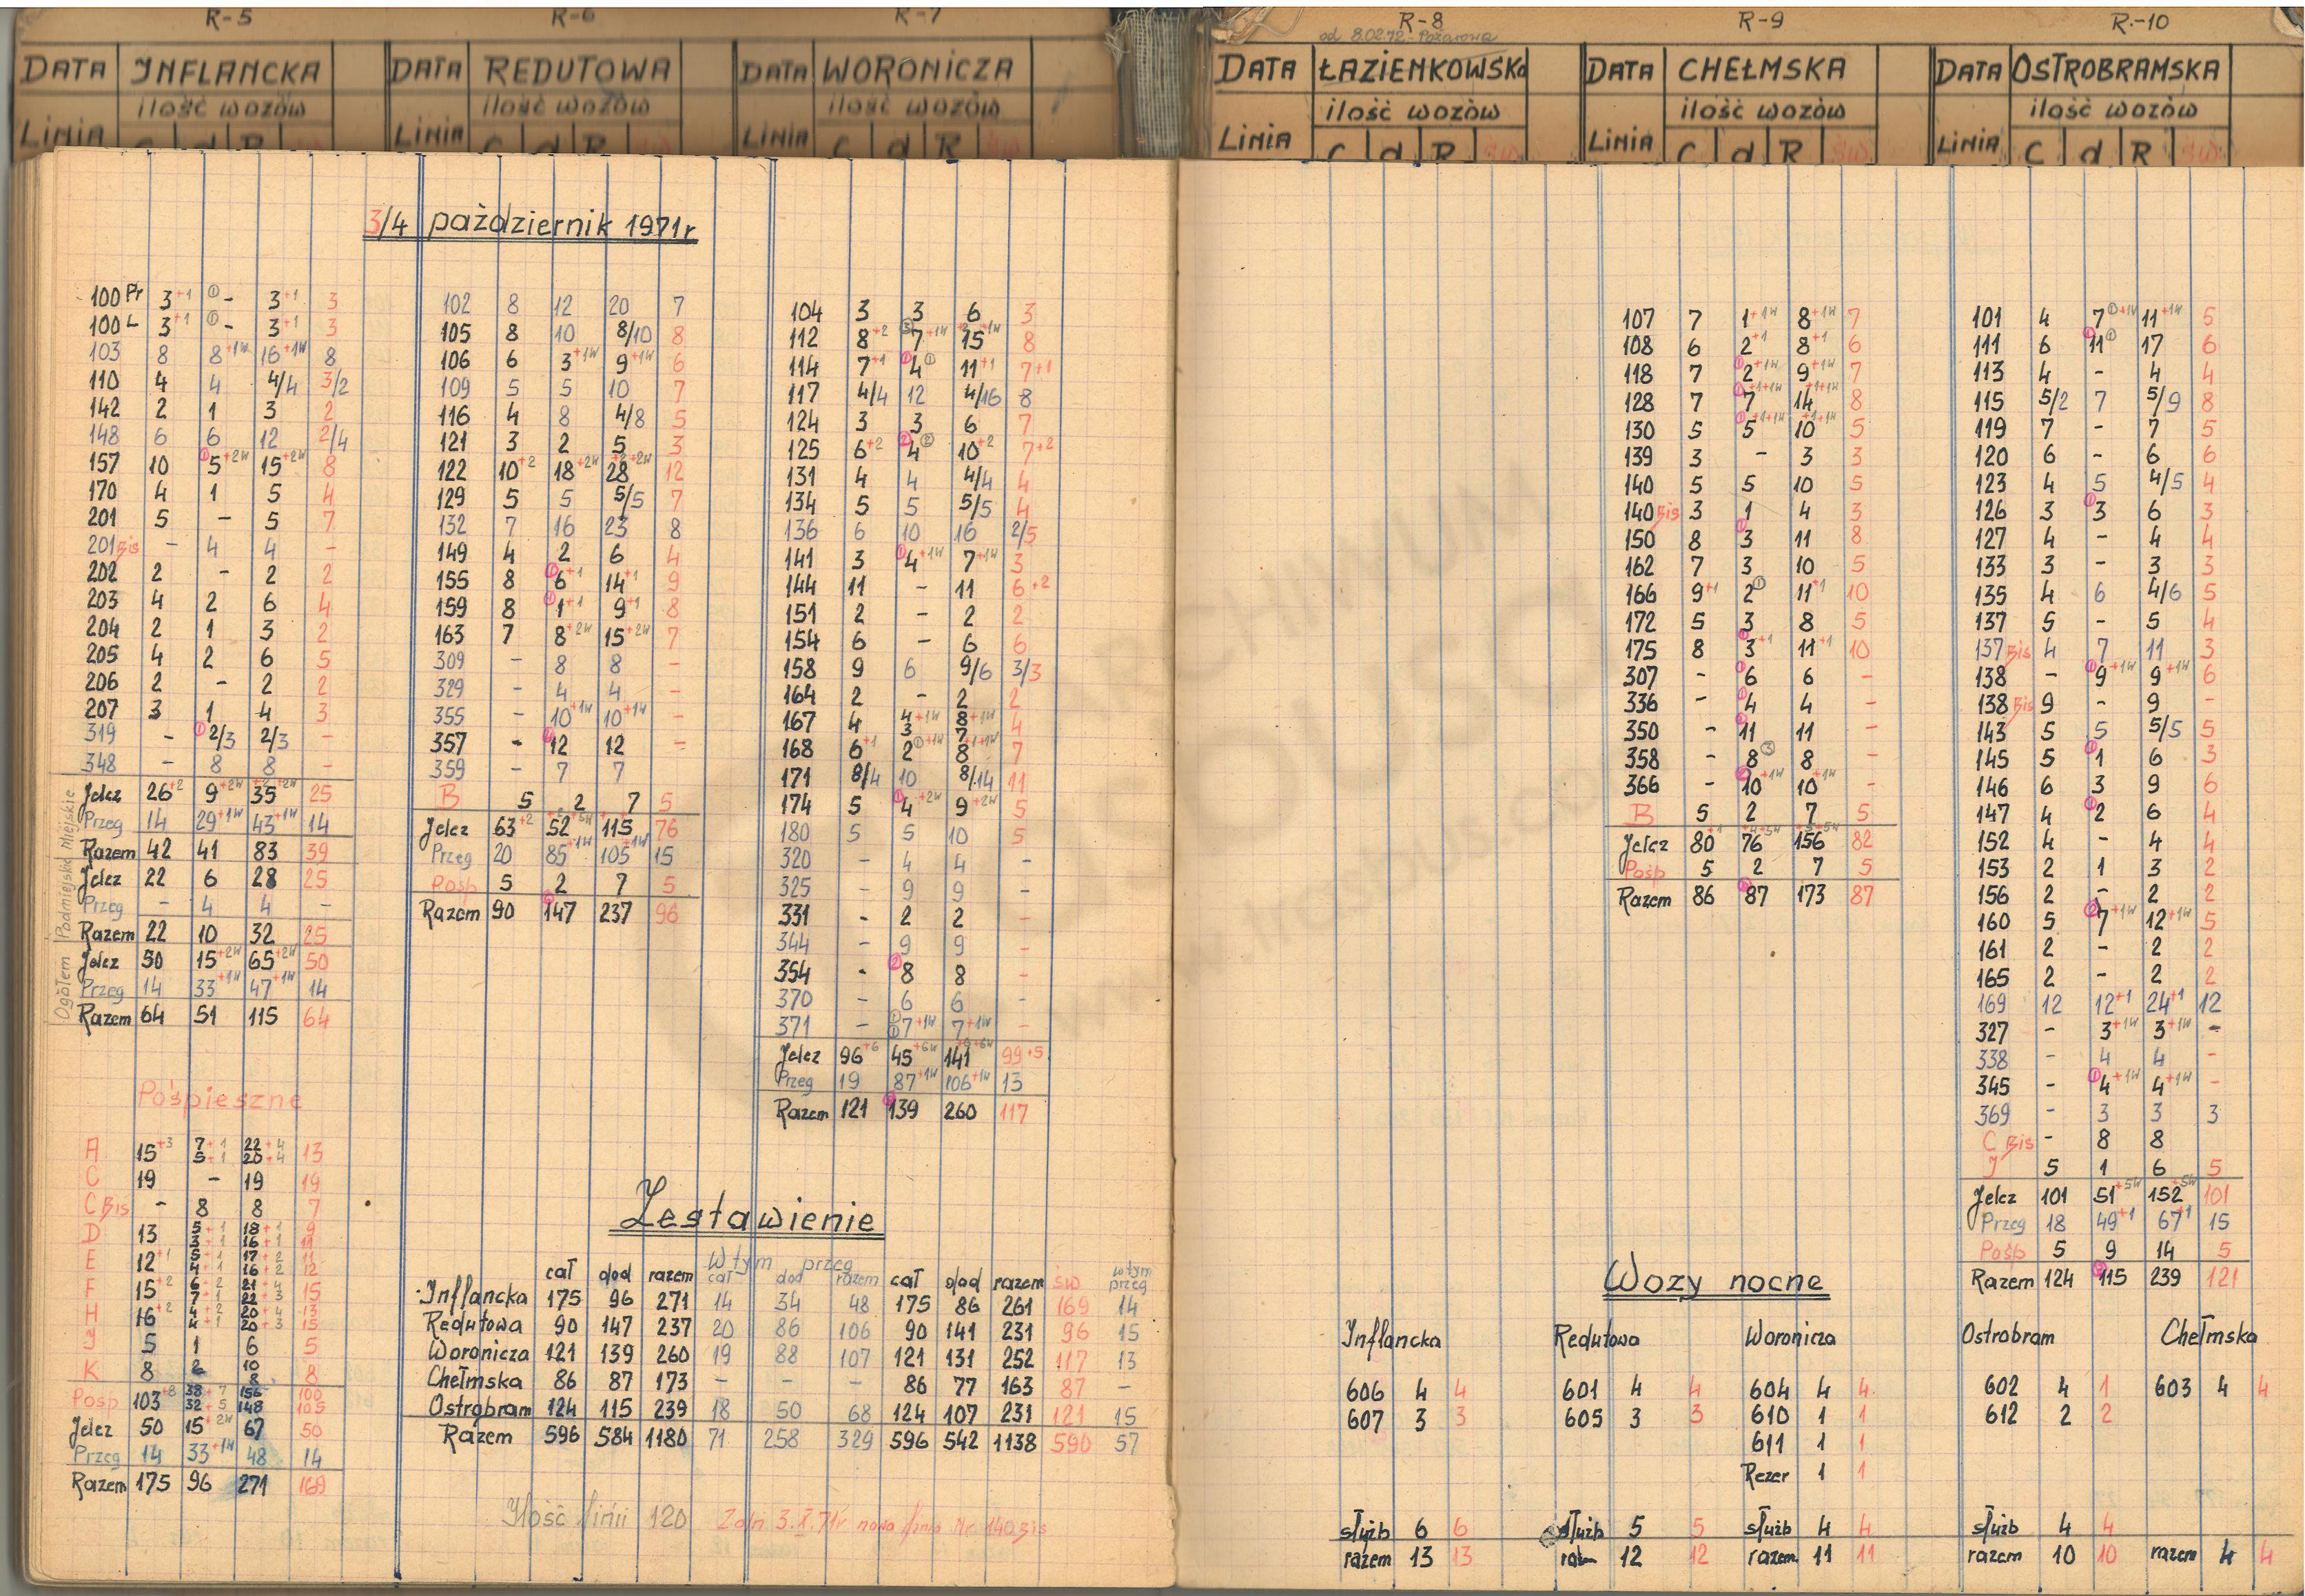 R-5 R-6 R-7 R-8 R-9 R.-10
od 8.02.72 - Pożarowa
DATA INFLANCKA DATA REDUTOWA DATA WORONICZA DATA ŁAZIENKOWSKa DATA CHEŁMSKA DATA OSTROBRAMSKA
ilość wozów ilość wozów ilość wozów ilość wozów ilość wozów ilość wozów
Linia C d R Św Linia C d R Św Linia C d R Św Linia C d R Św Linia C d R Św Linia C d R Św
3/4 październik 1971r
100 Pr 3+1 ① - 3+1 3
100 L 3+1 ① - 3+1 3
103 8 8+1W 16+1W 8
110 4 4 4/4 3/2
142 2 1 3 2
148 6 6 12 2/4
157 10 ① 5+2W 15+2W 8
170 4 1 5 4
201 5 - 5 7
201 Bis - 4 4 -
202 2 - 2 2
203 4 2 6 4
204 2 1 3 2
205 4 2 6 5
206 2 - 2 2
207 3 1 4 3
319 - ① 2/3 2/3 -
348 - 8 8 -
Ogółem Podmiejskie Miejskie
Jelcz 26+2 9+2W 35+2+2W 25
Przeg 14 29+1W 43+1W 14
Razem 42 41 83 39
Jelcz 22 6 28 25
Przeg - 4 4 -
Razem 22 10 32 25
Jelcz 50 15+2W 65+2W 50
Przeg 14 33+1W 47+1W 14
Razem 64 51 115 64
Pośpieszne
A 15+3 7+1 22+4 13
5+1 20+4
C 19 - 19 19
C Bis - 8 8 7
D 13 5+1 18+1 9
3+1 16+1 11
E 12+1 5+1 17+2 11
4+1 16+2 12
F 15+2 6+2 21+4 15
7+1 22+3
H 16+2 4+2 20+4 13
4+1 20+3 15
J 5 1 6 5
K 8 2 10 8
8
Pośp 103+8 38+7 156 100
32+5 148 105
Jelcz 50 15+2W 67 50
Przeg 14 33+1W 48 14
Razem 175 96 271 169
102 8 12 20 7
105 8 10 8/10 8
106 6 3+1W 9+1W 6
109 5 5 10 7
116 4 8 4/8 5
121 3 2 5 3
122 10+2 18+2W 28+2+2W 12
129 5 5 5/5 7
132 7 16 23 8
149 4 2 6 4
155 8 ① 6+1 14+1 9
159 8 ① 1+1 9+1 8
163 7 8+2W 15+2W 7
309 - 8 8 -
329 - 4 4 -
355 - 10+1W 10+1W -
357 - 12 12 -
359 - 7 7
B 5 2 7 5
Jelcz 63+2 52 115 76
Przeg 20 85+1W 105+1W 15
Pośp 5 2 7 5
Razem 90 147 237 96
104 3 3 6 3
112 8+2 ③ 7+1W 15+2+1W 8
114 7+1 ① 4 ① 11+1 7+1
117 4/4 12 4/16 8
124 3 3 6 7
125 6+2 ② 4 ② 10+2 7+2
131 4 4 4/4 4
134 5 5 5/5 4
136 6 10 16 2/5
141 3 ① 4+1W 7+1W 3
144 11 - 11 6+2
151 2 - 2 2
154 6 - 6 6
158 9 6 9/6 3/3
164 2 - 2 2
167 4 4+1W 8+1W 4
3 7
168 6+1 2 ①+1W 8+1+1W 7
171 8/4 10 8/14 11
174 5 ① 4+2W 9+2W 5
180 5 5 10 5
320 - 4 4 -
325 - 9 9 -
331 - 2 2 -
344 - 9 9 -
354 - ② 8 8 -
370 - 6 6 -
371 - ① ① 7+1W 7+1W -
Jelcz 96+6 45+6W 141+6W 99+5
Przeg 19 87+1W 106+1W 13
Razem 121 139 260 117
Zestawienie
W tym przeg
cał dod razem cał dod razem cał dod razem św w tym przeg
Inflancka 175 96 271 14 34 48 175 86 261 169 14
Redutowa 90 147 237 20 86 106 90 141 231 96 15
Woronicza 121 139 260 19 88 107 121 131 252 117 13
Chełmska 86 87 173 - - - 86 77 163 87 -
Ostrobram 124 115 239 18 50 68 124 107 231 121 15
Razem 596 584 1180 71 258 329 596 542 1138 590 57
Ilość linii 120 Z dn 3.X.71r nowa linia Nr 140 Bis
107 7 1+1W 8+1W 7
108 6 2+1 8+1 6
118 7 ① 2+1W 9+1W 7
128 7 ① 7+1+1W 14+1+1W 8
130 5 ① 5+1+1W 10+1+1W 5
139 3 - 3 3
140 5 5 10 5
140 Bis 3 1 4 3
150 8 ① 3 11 8
162 7 3 10 5
166 9+1 2 ① 11+1 10
172 5 3 8 5
175 8 ① 3+1 11+1 10
307 - ① 6 6 -
336 - ① 4 4 -
350 - 11 11 -
358 - 8 ③ 8 -
366 - 10+1W 10+1W -
B 5 2 7 5
Jelcz 80+1 76+4+5W 156+5+5W 82
Pośp 5 2 7 5
Razem 86 87 173 87
101 4 7 ①+1W 11+1W 5
111 6 ① 11 ① 17 6
113 4 - 4 4
115 5/2 7 5/9 8
119 7 - 7 5
120 6 - 6 6
123 4 5 4/5 4
126 3 ① 3 6 3
127 4 - 4 4
133 3 - 3 3
135 4 6 4/6 5
137 5 - 5 4
137 Bis 4 7 11 3
138 - ① 9+1W 9+1W 6
138 Bis 9 - 9 -
143 5 5 5/5 5
145 5 ① 1 6 3
146 6 3 9 6
147 4 ① 2 6 4
152 4 - 4 4
153 2 1 3 2
156 2 - 2 2
160 5 ② 7+1W 12+1W 5
161 2 - 2 2
165 2 - 2 2
169 12 12+1 24+1 12
327 - 3+1W 3+1W -
338 - 4 4 -
345 - ① 4+1W 4+1W -
369 - 3 3 3
C Bis - 8 8
J 5 1 6 5
Jelcz 101 51+5W 152+5W 101
Przeg 18 49+1 67+1 15
Pośp 5 9 14 5
Razem 124 115 239 121
Wozy nocne
Inflancka Redutowa Woronicza Ostrobram Chełmska
606 4 4 601 4 4 604 4 4 602 4 1 603 4 4
607 3 3 605 3 3 610 1 1 612 2 2
611 1 1
Rezer 1 1
służb 6 6 służb 5 5 służb 4 4 służb 4 4
razem 13 13 razem 12 12 razem 11 11 razem 10 10 razem 4 4